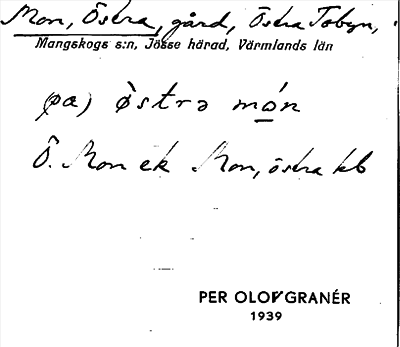 Mon, Östra, gård, Östra Tobyn,
Mangskogs s:n, Jösse härad, Värmlands län
(pa) östrə mó̲n
Ö. Mon ek Mon, östra kb
PER OLOF GRANÉR
1939